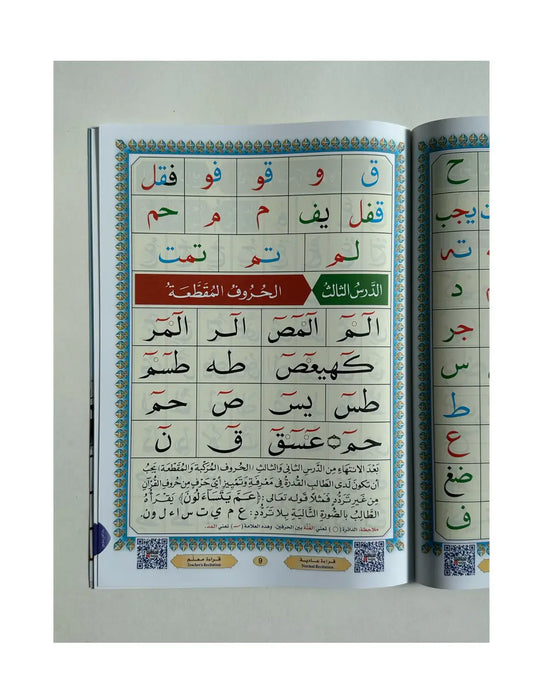 ق و قو فو فقل
قفل يف م م حم
لم تم تمت
الدَّرسُ الثَّالثُ الحُرُوفُ المُقَطَّعَةُ
الٓمٓ الٓمٓصٓ الٓر الٓمٓر
كٓهيعٓصٓ طه طسٓمٓ
طسٓ يسٓ صٓ حمٓ
حمٓ ۝ عٓسٓقٓ قٓ نٓ
بَعْدَ الانْتِهَاءِ مِن الدَّرسِ الثاني والثالثِ (الحُروفِ المُرَكَّبَةِ والمُقَطَّعَة)، يَجِبُ
أن تكونَ لدى الطالبِ القُدرةُ في مَعْرِفَةِ وَتَمْيِيزِ أيِّ حَرْفٍ مِن حُروفِ القُرْآنِ
مِن غَيرِ تَرَدُّدٍ فَمَثَلًا قوله تعالى: ﴿عَمَّ يَتَسَآءَلُونَ﴾ يَقْرَأُهَا
الطَّالِبُ بالصُّورَةِ التَّالِيَةِ بِلَا تَرَدُّدٍ: ع م ي ت س ا ء ل و ن.
ملاحظة: الدائرة (○) تعني الغنّة بين الحرفين، وهذه العلامة (ــٓ) تعني المد.
قراءة معلم
Teacher's Recitation
9
قراءة عادية
Normal Recitation
ح
يجب
ته
د
جر
س
ط
ع
ضغ
ف